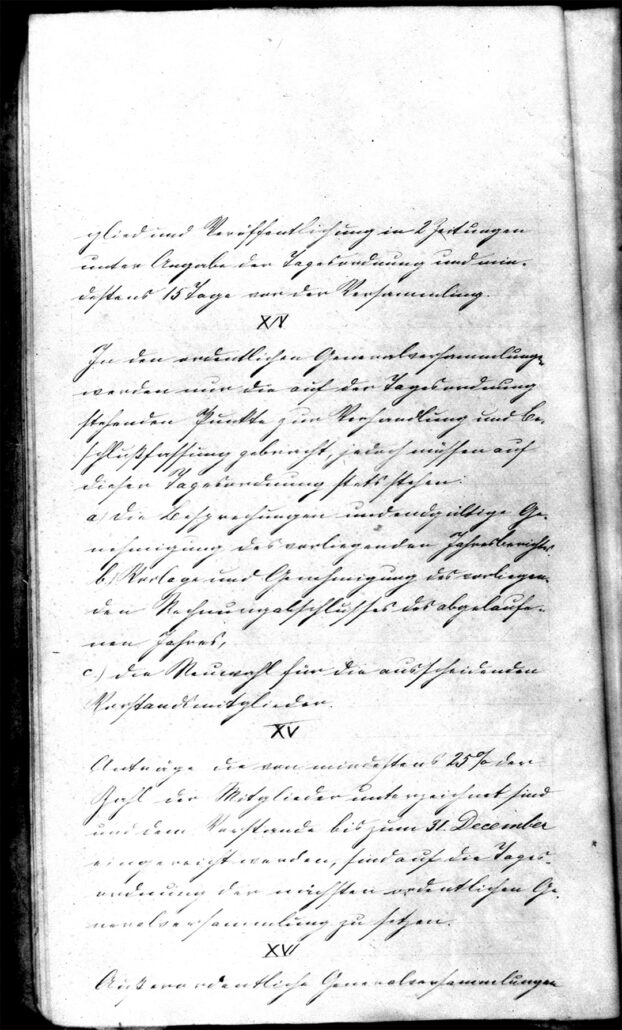 glied und Veröffentlichung in 2 Zeitungen
unter Angabe der Tagesordnung und min-
destens 15 Tage vor der Versammlung.
XIV
In den ordentlichen Generalversammlunge
werden nur die auf der Tagesordnung
stehenden Punkte zur Verhandlung und Be-
schlußfassung gebracht, jedoch müssen auf
dieser Tagesordnung stets stehen:
a) die Besprechungen und endgültige Ge-
nehmigung des vorliegenden Jahresberichts.
b.) Vorlage und Genehmigung des vorliegen-
den Rechnungsabschlusses des abgelaufe-
nen Jahres,
c.) die Neuwahl für die ausscheidenden
Vorstandsmitglieder.
XV
Anträge die von mindestens 25% der
Zahl der Mitglieder unterzeichnet sind
und dem Vorstande bis zum 31. December
eingereicht werden, sind auf die Tages-
ordnung der nächsten ordentlichen Ge-
neralversammlung zu setzen.
XVI
Außerordentliche Generalversammlungen